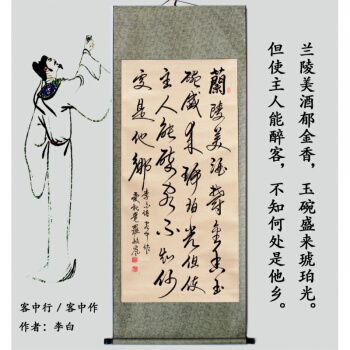 兰陵美酒郁金香，玉碗盛来琥珀光。
但使主人能醉客，不知何处是他乡。
蘭陵美酒鬱金香玉
碗盛来琥珀光但使
主人能醉客不知何
處是他鄉
李白诗客中作
客中行/客中作
作者：李白